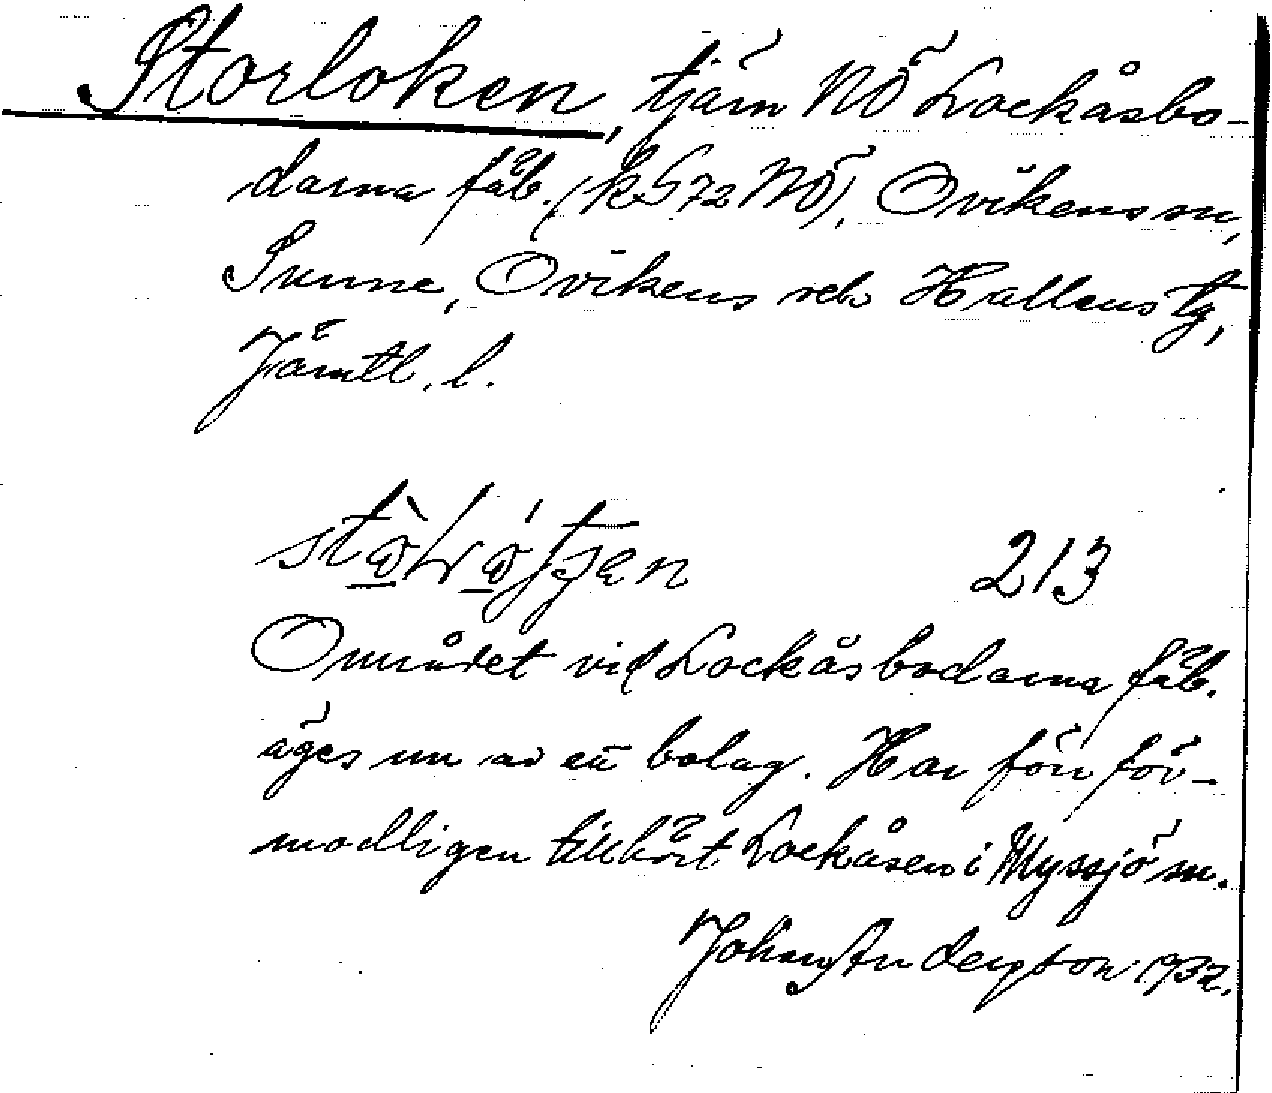 Storloken, tjärn NÖ Lockåsbo-
darna fäb. (kS 72 NÖ), Ovikens sn,
Sunne, Ovikens och Hallens tg,
Jämtl. l.
213
Området vid Lockåsbodarna fäb.
äges nu av ett bolag. Har förr för-
modligen tillhört Lockåsen i Myssjö sn.
Johnny Andersson 1932.